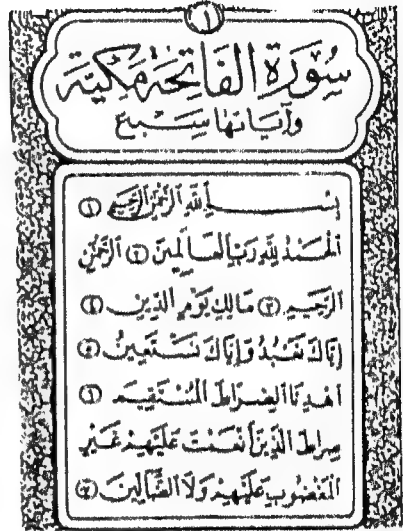 ١
سُوْرَةُ الفَاتِحَةِ مَكِيَّة
وَآيَاتهَا سَبْع
بِسْــــمِ اللَّهِ ٱلرَّحْمَٰنِ ٱلرَّحِيمِ ١
ٱلْحَمْدُ لِلَّهِ رَبِّ ٱلْعَالَمِينَ ٢ ٱلرَّحْمَٰنِ
ٱلرَّحِيمِ ٣ مَالِكِ يَوْمِ ٱلدِّينِ ٤
إِيَّاكَ نَعْبُدُ وَإِيَّاكَ نَسْتَعِينُ ٥
ٱهْدِنَا ٱلصِّرَاطَ ٱلْمُسْتَقِيمَ ٦
صِرَاطَ ٱلَّذِينَ أَنْعَمْتَ عَلَيْهِمْ غَيْرِ
ٱلْمَغْضُوبِ عَلَيْهِمْ وَلَا ٱلضَّالِّينَ ٧